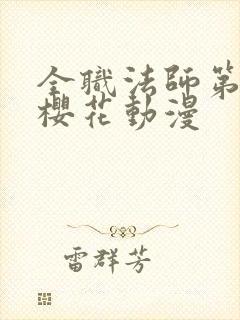 全職法師第
櫻花動漫
雷群芳